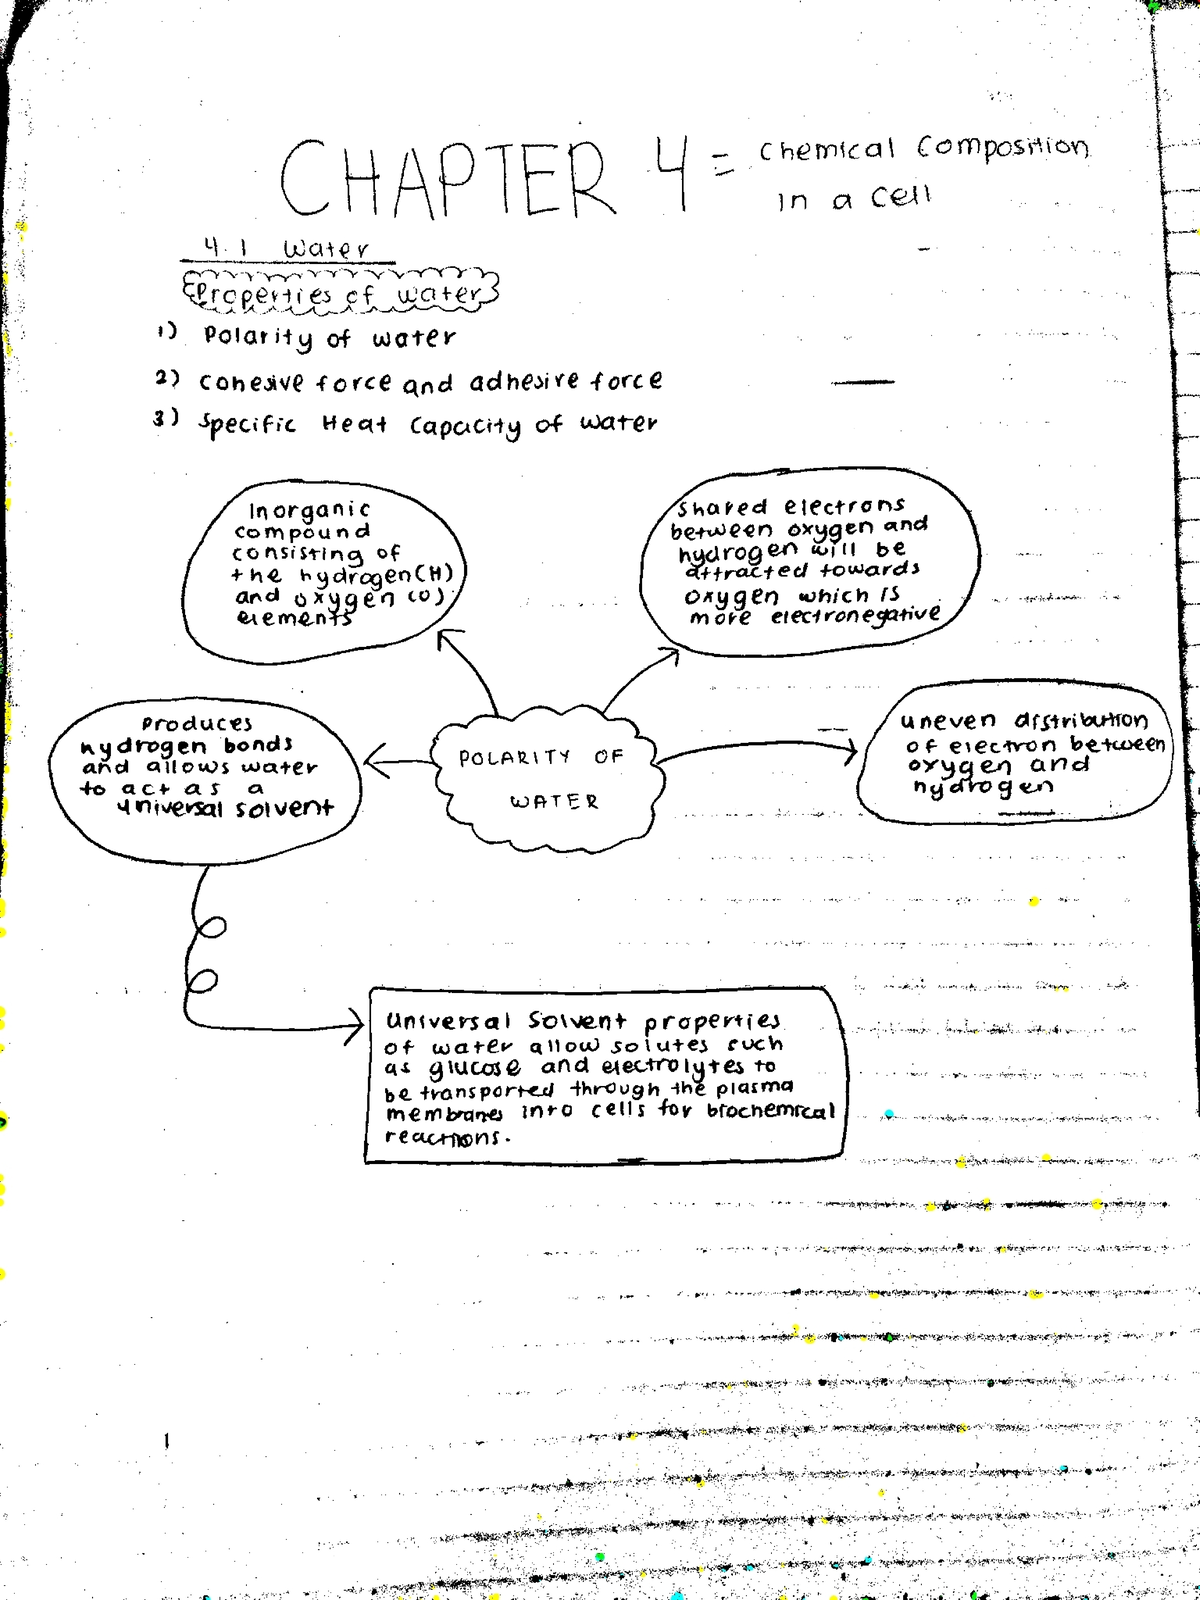 CHAPTER 4 = Chemical Composition
in a cell
4.1 Water
Properties of water
1) Polarity of water
2) Cohesive force and adhesive force
3) Specific Heat Capacity of water
Inorganic
compound
consisting of
the hydrogen(H)
and oxygen (O)
elements
Shared electrons
between oxygen and
hydrogen will be
attracted towards
oxygen which is
more electronegative
Produces
hydrogen bonds
and allows water
to act as a
universal solvent
POLARITY OF
WATER
uneven distribution
of electron between
oxygen and
hydrogen
Universal Solvent properties
of water allow solutes such
as glucose and electrolytes to
be transported through the plasma
membranes into cells for biochemical
reactions.
1